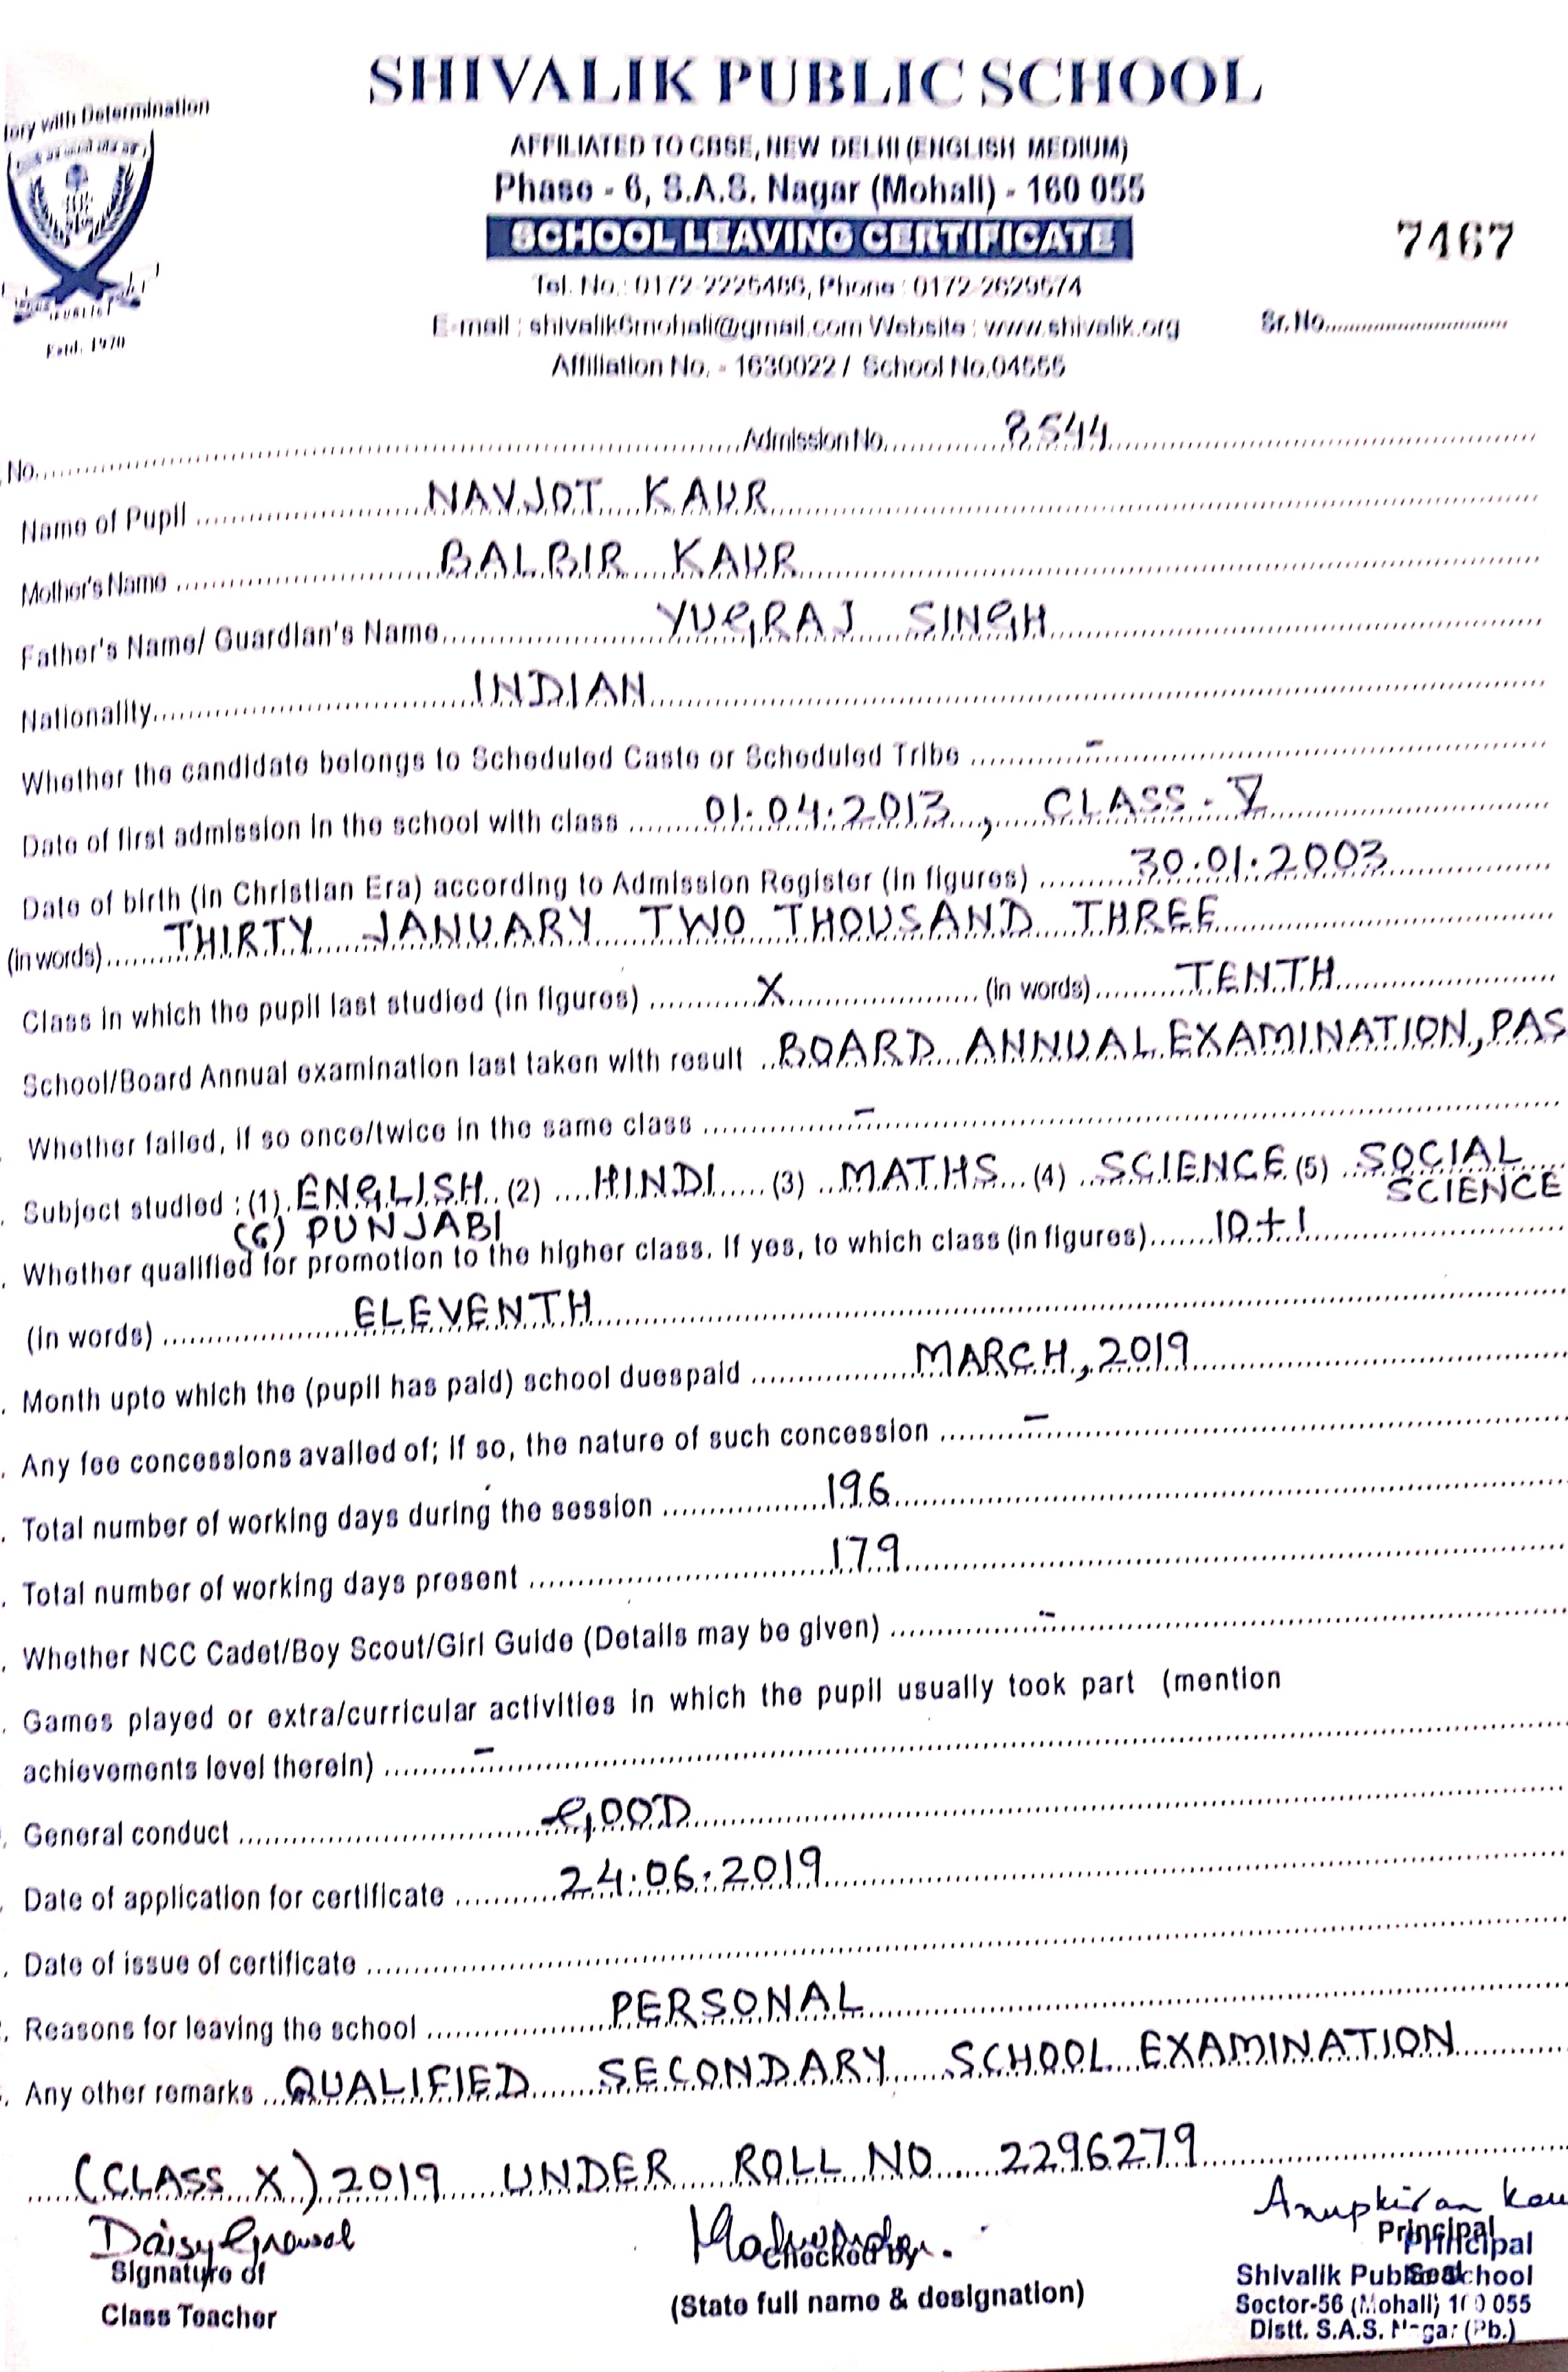 SHIVALIK PUBLIC SCHOOL
tory with Determination
AFFILIATED TO CBSE, NEW DELHI (ENGLISH MEDIUM)
Phase - 6, S.A.S. Nagar (Mohali) - 160 055
SCHOOL LEAVING CERTIFICATE
7467
Tel. No. : 0172-2225486, Phone : 0172-2629574
E-mail : shivalik6mohali@gmail.com Website : www.shivalik.org
Sr. No.
Estd. 1970
Affiliation No. - 1630022 / School No.04555
No. Admission No. 8544
Name of Pupil NAVJOT KAUR
Mother's Name BALBIR KAUR
Father's Name/ Guardian's Name YUGRAJ SINGH
Nationality INDIAN
Whether the candidate belongs to Scheduled Caste or Scheduled Tribe -
Date of first admission in the school with class 01.04.2013, CLASS - V
Date of birth (in Christian Era) according to Admission Register (in figures) 30.01.2003
(in words) THIRTY JANUARY TWO THOUSAND THREE
Class in which the pupil last studied (in figures) X (in words) TENTH
School/Board Annual examination last taken with result BOARD ANNUAL EXAMINATION, PAS
Whether failed, if so once/twice in the same class -
Subject studied : (1) ENGLISH (2) HINDI (3) MATHS (4) SCIENCE (5) SOCIAL SCIENCE
(6) PUNJABI
Whether qualified for promotion to the higher class. If yes, to which class (in figures) 10+1
(in words) ELEVENTH
Month upto which the (pupil has paid) school duespaid MARCH, 2019
Any fee concessions availed of; if so, the nature of such concession -
Total number of working days during the session 196
Total number of working days present 179
Whether NCC Cadet/Boy Scout/Girl Guide (Details may be given) -
Games played or extra/curricular activities in which the pupil usually took part (mention
achievements level therein) -
General conduct GOOD
Date of application for certificate 24.06.2019
Date of issue of certificate
Reasons for leaving the school PERSONAL
Any other remarks QUALIFIED SECONDARY SCHOOL EXAMINATION
(CLASS X) 2019 UNDER ROLL NO 2296279
Daisy Grewal
Anupkiran Kau
Signature of
Class Teacher
Checked by
(State full name & designation)
Principal
Seal
Principal
Shivalik Public School
Sector-56 (Mohali) 160 055
Distt. S.A.S. Nagar (Pb.)